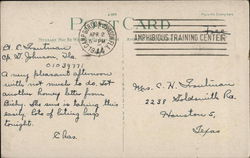 POST CARD
Free
APR 2
1944
AMPHIBIOUS TRAINING CENTER
Lt. C. Troutman
Cp. W. Johnson, Fla.
01039771
A very pleasant afternoon
with not much to do. Got
another honey letter from
Betty. She sure is taking this
early. Lots of biting bugs
tonight.
Chas.
Mrs. C. H. Troutman
2238 Goldsmith Rd.
Houston 5,
Texas